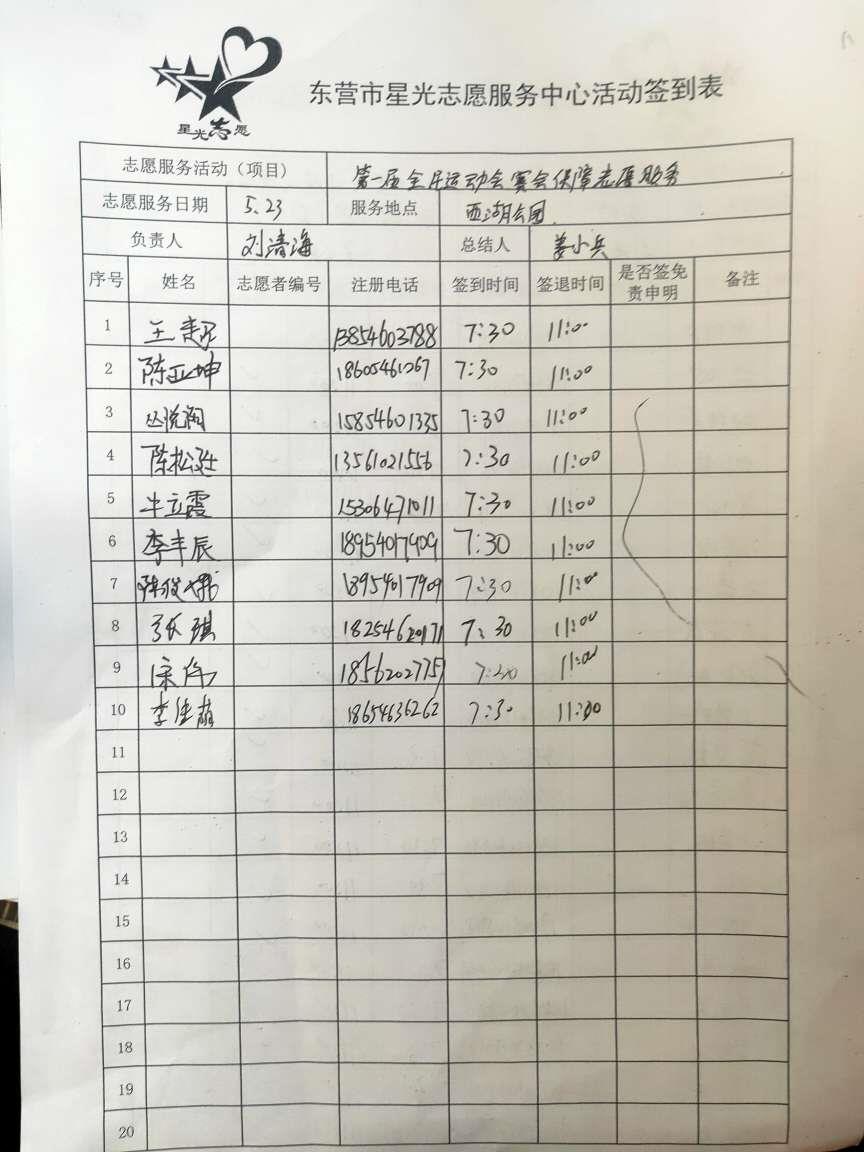 星光志愿
东营市星光志愿服务中心活动签到表
志愿服务活动（项目） 第一届全民运动会赛会保障志愿服务
志愿服务日期 5.23 服务地点 西湖公园
负责人 刘清海 总结人 姜小兵
序号 姓名 志愿者编号 注册电话 签到时间 签退时间 是否签免责申明 备注
1 王超 13854603788 7:30 11:00
2 陈亚坤 18605461267 7:30 11:00
3 丛悦阁 15854601335 7:30 11:00
4 陈松 13561021556 7:30 11:00
5 牛立霞 15306471011 7:30 11:00
6 李丰辰 18954017909 7:30 11:00
7 陈俊 18954017909 7:30 11:00
8 张琪 18254620171 7:30 11:00
9 宋伟 1856202775 11:00
10 李佳 18654636262 7:30 11:00
11
12
13
14
15
16
17
18
19
20